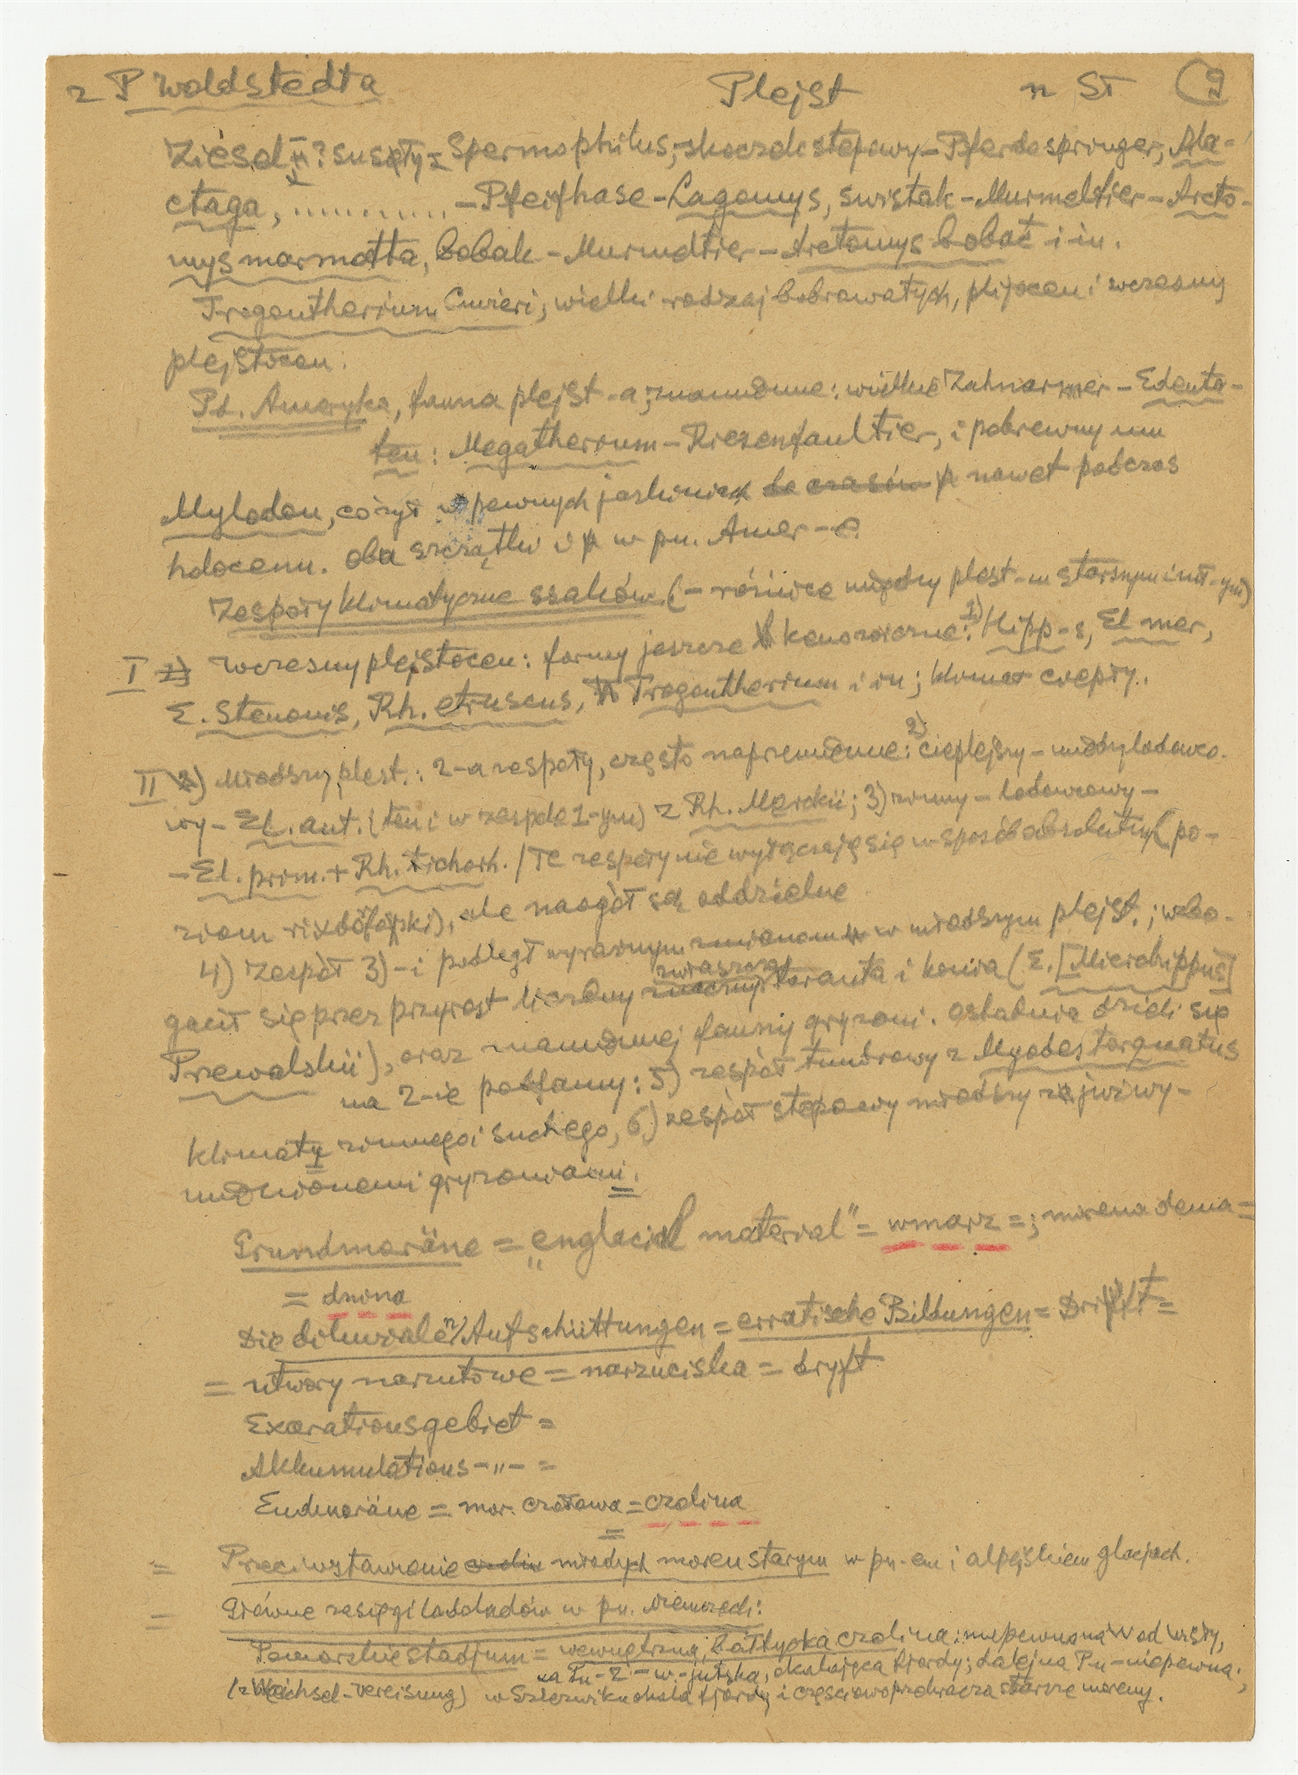 z P Woldstedta Plejst n ST 9
Ziesel ? susły = Spermophilus, skoczek stepowy – Pferdespringer, Ala-
ctaga, ............ – Pfeifhase – Lagomys, świstak – Murmeltier – Arcto-
mys marmotta, bobak – Murmeltier – Arctomys bobac i in.
Trogontherium Cuvieri, wielki rodzaj bobrowatych, pliocen i wczesny
plejstocen.
Pd. Ameryka, fauna plejst-a; znamienne: wielkie Zahnarmer – Edenta-
ten: Megatherium – Riesenfaultier, i pokrewny mu
Mylodon, co żył w pewnych jaskiniach do czasów p nawet podczas
holocenu. oba szczątki i w pn. Amer-e.
Zespoły klimatyczne ssaków (– różnice między plest-m starszym i mł-ym)
I wczesny plejstocen: formy jeszcze kenozoiczne: 1) Hipp-s, El mer,
E. Stenonis, Rh. etruscus, Trogontherium i in; klimat ciepły.
II 2) Młodszy plest.: 2-a zespoły, często naprzemienne: 2) cieplejszy – międzylodowco-
wy – El. ant. (ten i w zespole 1-ym) z Rh. Merckii; 3) zimny – lodowcowy –
– El. prim. + Rh. tichorh. / Te zespoły nie wyłączają się w sposób absolutny (po-
ziom rixdorfski), ale naogół są oddzielne
4) Zespół 3)-i podległ wyraźnym zmianom w młodszym plejst.; wzbo-
gacił się przez przyrost liczebny zwłaszcza taranta i konia (E. [Microhippus]
Przewalskii), oraz znamiennej fauny gryzoni. Ostatnia dzieli się
na 2-ie podfauny: 5) zespół tundrowy z Myodes torquatus
klimatu zimnego i suchego, 6) zespół stepowy młodszy z wy-
mienionemi gryzoniami.
Grundmoräne = „englacial material" = wmarz =; morena denna =
= dnina
Die diluvialen Aufschüttungen = erratische Bildungen = Drift =
= utwory narzutowe = narzuciska = dryft
Exarationsgebiet =
Akkumulations-„- =
Endmoräne = mor. czołowa = czolina
= Przeciwstawienie młodych moren starym w pn-em i alpejskiem glacjach.
= Główne zasięgi lądolodów w pn. Niemczech:
Pomorskie stadjum = wewnętrzna, bałtycka czolina: niepewna na W od Wisły,
na Pn-Z – w-jutska, okalająca fjordy; dalej na Pn – niepewna;
(= Weichsel-Vereisung) w Szlezwiku okala fjordy i częściowo przekracza starsze moreny.